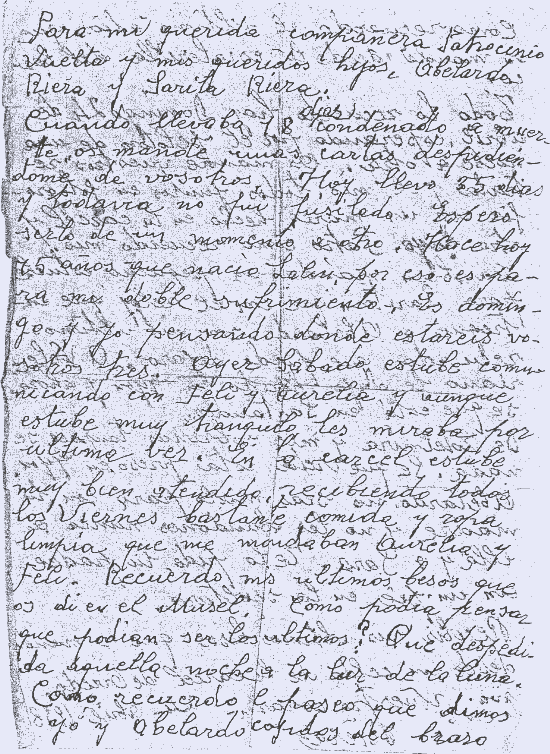 Para mi querida compañera Patrocinio
Vuelta y mis queridos hijos, Abelardo
Riera y Sarita Riera.
Cuando llevaba 18 dias condenado a muer-
te os mandé unas cartas despidien-
dome de vosotros. Hoy llevo 55 dias
y todavia no fui fusilado. Espero
serlo de un momento a otro. Hace hoy
15 años que nacio Lalin por eso es pa-
ra mi doble sufrimiento. Es domin-
go y yo pensando donde estareis vo-
sotros tres. Ayer Sabado estube comu-
nicando con Feli y Aurelia y aunque
estube muy tranquilo les miraba por
ultima ves. En la carcel estube
muy bien atendido, recibiendo todos
los Viernes bastante comida y ropa
limpia que me mandaban Aurelia y
Feli. Recuerdo mis ultimos besos que
os di en el Musel. Como podia pensar
que podian ser los ultimos? Que despedi-
da aquella noche a la luz de la luna.
Como recuerdo el paseo que dimos
yo y Abelardo cojidos del brazo